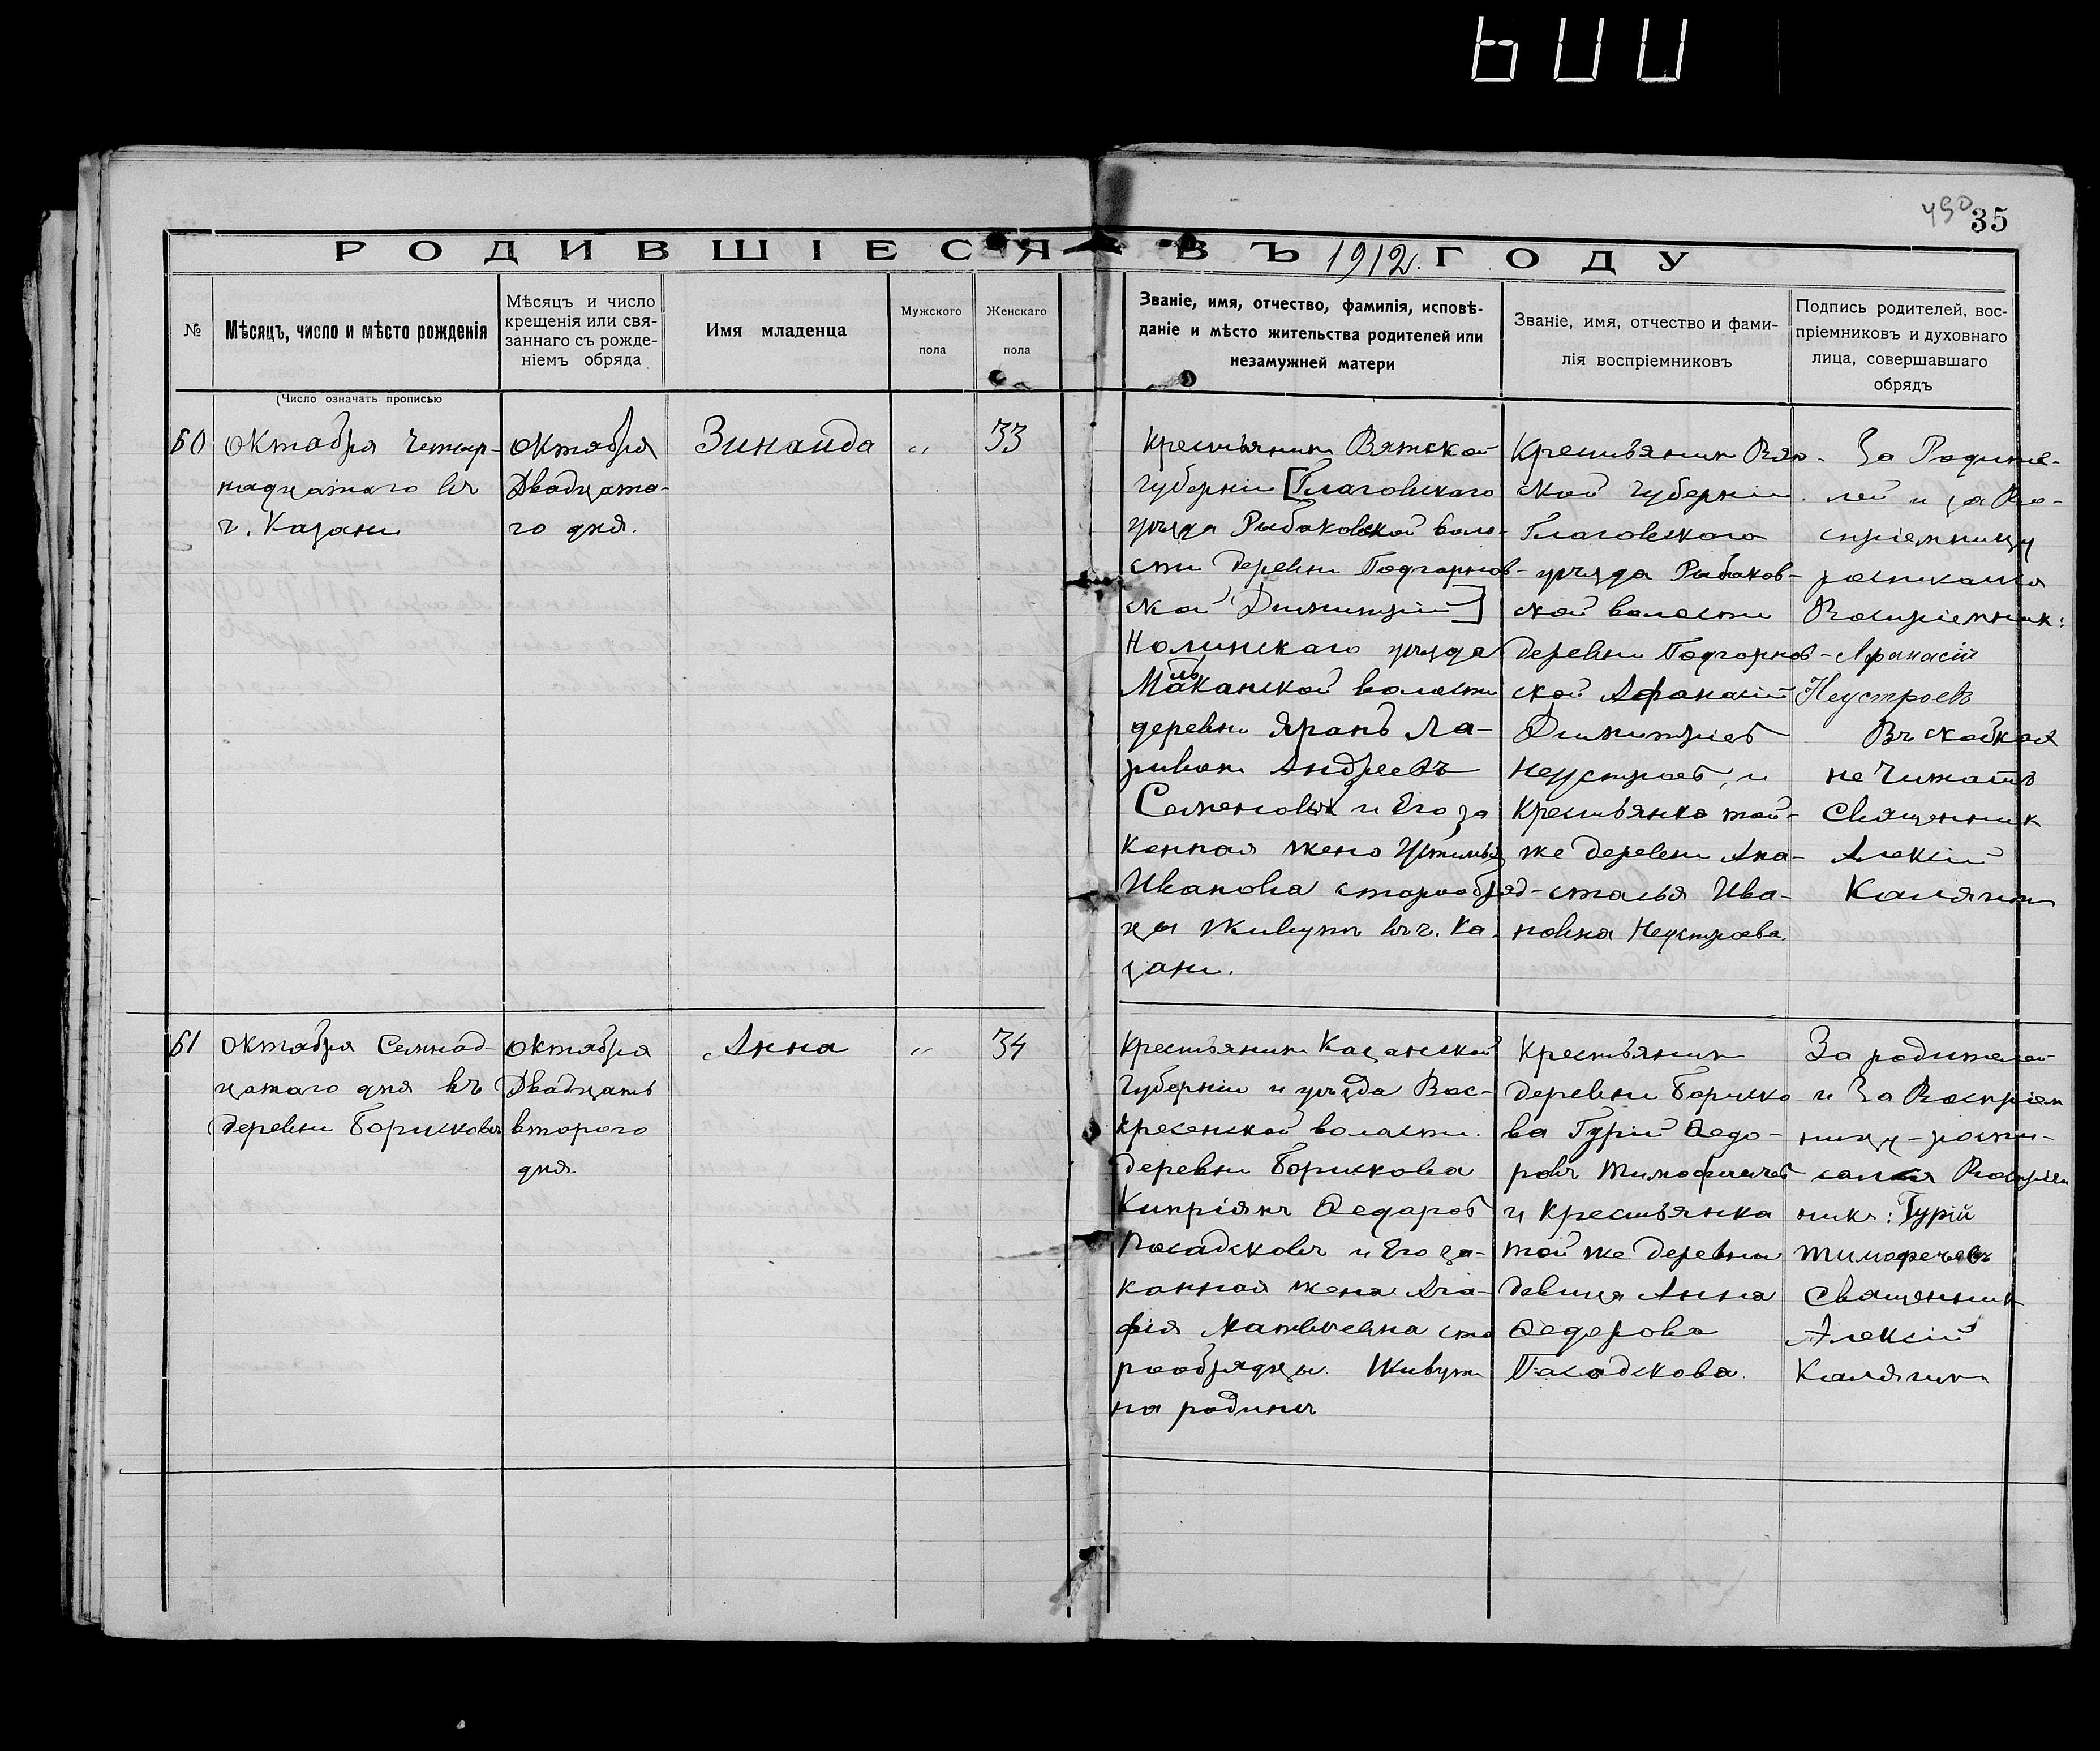 600
490 35
РОДИВШІЕСЯ ВЪ 1912. ГОДУ
№
Мѣсяцъ, число и мѣсто рожденія
Мѣсяцъ и число
крещенія или свя-
заннаго съ рожде-
ніемъ обряда
Имя младенца
Мужского
пола
Женскаго
пола
Званіе, имя, отчество, фамилія, исповѣ-
даніе и мѣсто жительства родителей или
незамужней матери
Званіе, имя, отчество и фами-
лія воспріемниковъ
Подпись родителей, вос-
пріемниковъ и духовнаго
лица, совершавшаго
обрядъ
(Число означать прописью
60
Октября четыр-
надцатаго въ
г. Казани
Октября
Двадцата-
го дня.
Зинаида
"
33
Крестьянинъ Вятской
Губерніи [Глазовскаго
уѣзда Рыбаковской воло-
сти деревни Подгорнов-
ской Димитрій]
Нолинскаго уѣзда
деревни Яранъ Ла-
ривон Андреевъ
Семеновых и Его за
конная жена Устинья
Иванова старообряд-
цы живутъ въ г. Ка
зани.
Крестьянин Вят-
ской Губерніи.
Глазовскаго
уѣзда Рыбаков-
ской волости
деревни Подгорнов-
ской Афанасій
Димитріев
Неустроев, и
Крестьянка той-
же деревни Ана-
сталья Ива-
новна Неустроева.
За Родите-
лей и за Во-
спріемницу
росписался
Воспріемник:
Афанасій
Неустроевъ
Въ скобках
не читать
Священник
Алексій
Калягин
61
Октября Семнад-
цатаго дня въ
деревни Борисковѣ
Октября
Двадцать
второго
дня.
Анна
"
34
Крестьянин Казанской
Губерніи и уѣзда Вос-
кресенской волости.
деревни Борискова
Кипріянъ Федоров
Посадсковъ и Его за-
конная жена Ага-
фія Матвеевна ста
рообрядцы. Живутъ
на родинѣ
Крестьянин
деревни Бориско
ва Гурій Федо-
ровъ Тимофеичев
и Крестьянка
той же деревни
девица Анна
Федорова
Посадскова.
За родителей
и За Воспріем
ницу-роспи-
сался Воспріем
никъ: Гурій
Тимофечевъ
Священник
Алексій
Калягин